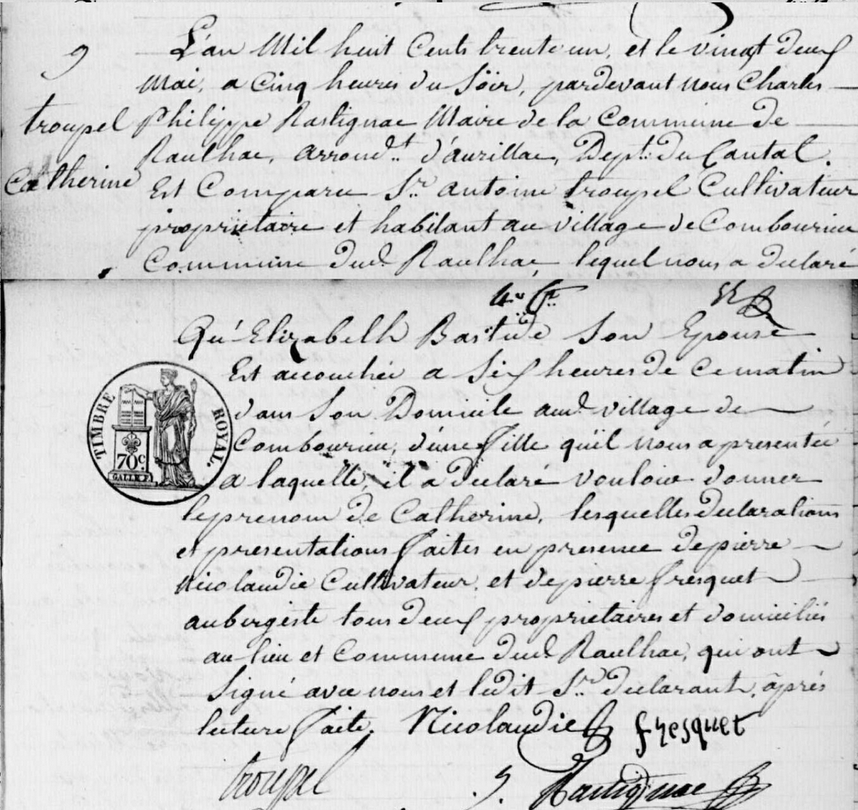 9
troupel
Catherine
L'an Mil huit Cents trente un, et le vingt deux
Mai, a Cinq heures du Söir, pardevant nous Charles
Philippe Rastignac Maire de la Commune de
Raulhac, arrond.t d'aurillac, Dept. du Cantal.
Est Comparu S.r antoine troupel Cultivateur
propriétaire et habitant au village de Combourieu
Commune dud. Raulhac, lequel nous a declaré
Qu'Elizabeth Bastide Son Epouse
Est accouchée a Six heures de Ce matin
dans Son Domicile aud. village de
Combourieu, d'une fille qu'il nous a presentée
a laquelle il a declaré vouloir donner
le prenom de Catherine, lesquelles declarations
et presentations faites en presence de pierre
Nicolaudie Cultivateur et de pierre fresquet
aubergiste tous deux proprietaires et domiciliés
au lieu et Commune dud. Raulhac, qui ont
Signé avec nous et ledit S.r declarant, après
lecture faite. Nicolaudie fresquet
troupel Rastignac
TIMBRE ROYAL.
70c.